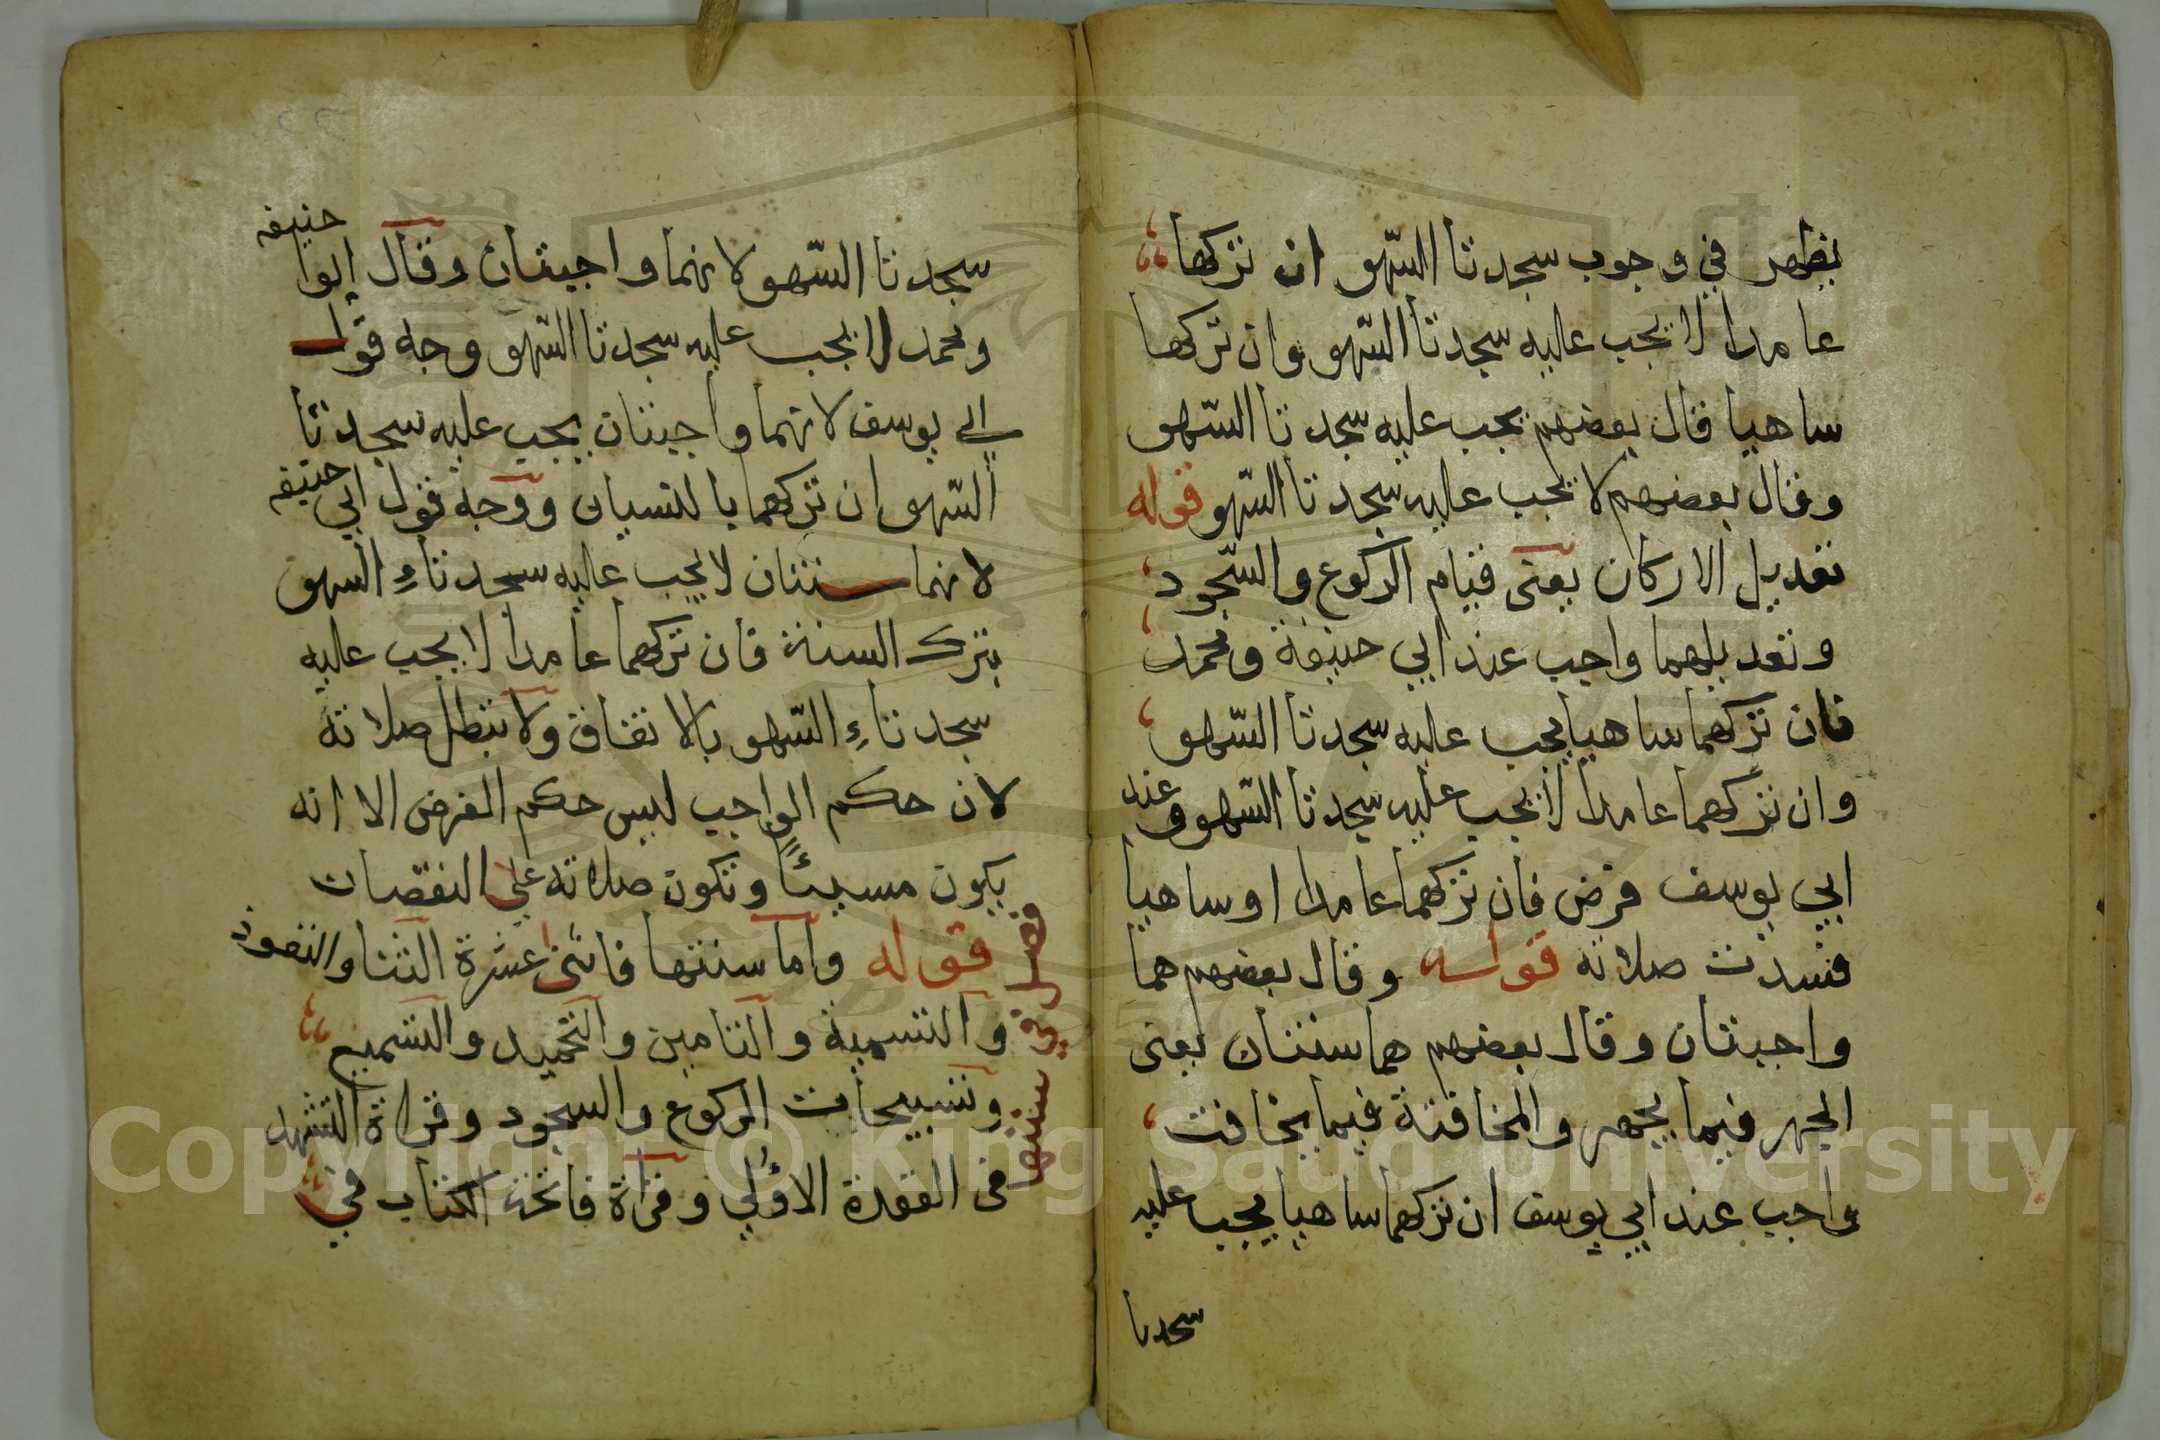 يظهر في وجوب سجدتا السّهو ان تركها
عامدا لا يجب عليه سجدتا السّهو وان تركها
ساهيا قال بعضهم يجب عليه سجدتا السّهو
وقال بعضهم لا يجب عليه سجدتا السّهو قوله
تعديل الاركان يعنى قيام الركوع والسّجود
وتعديلهما واجب عند ابي حنيفة ومحمد
فان تركهما ساهيا يجب عليه سجدتا السّهو
وان تركهما عامدا لا يجب عليه سجدتا السّهو وعند
ابي يوسف فرض فان تركهما عامدا اوساهيا
فسدت صلاته قوله وقال بعضهم هما
واجبتان وقال بعضهم هما سنتان يعنى
الجهر فيما يجهر والمخافتة فيما يخافت
واجب عند ابي يوسف ان تركهما ساهيا يجب عليه
سجدتا
سجدتا السّهو لانهما واجبتان وقال ابوا حنيفه
ومحمد لا يجب عليه سجدتا السّهو وجه قول
ابي يوسف لانهما واجبتان يجب عليه سجدتا
السّهو ان تركهما بالنسيان ووجه قول ابي حنيفه
لانهما سنتان لا يجب عليه سجدتاء السهو
بترك السنة فان تركهما عامدا لا يجب عليه
سجدتاء السّهو بالاتفاق ولا تبطل صلاته
لان حكم الواجب ليس حكم الفرض الا انه
يكون مسيئًا وتكون صلاته على النقصان
قوله واما سننها فاثنى عشرة الثنا والتعوذ
والتسمية والتامين والتحميد والتسميع
وتسبيحات الركوع والسجود وقراة التشهد
في القعدة الاوُلي وقراة فاتحة الكتاب في
فصل في سننها
Copyright © King Saud University